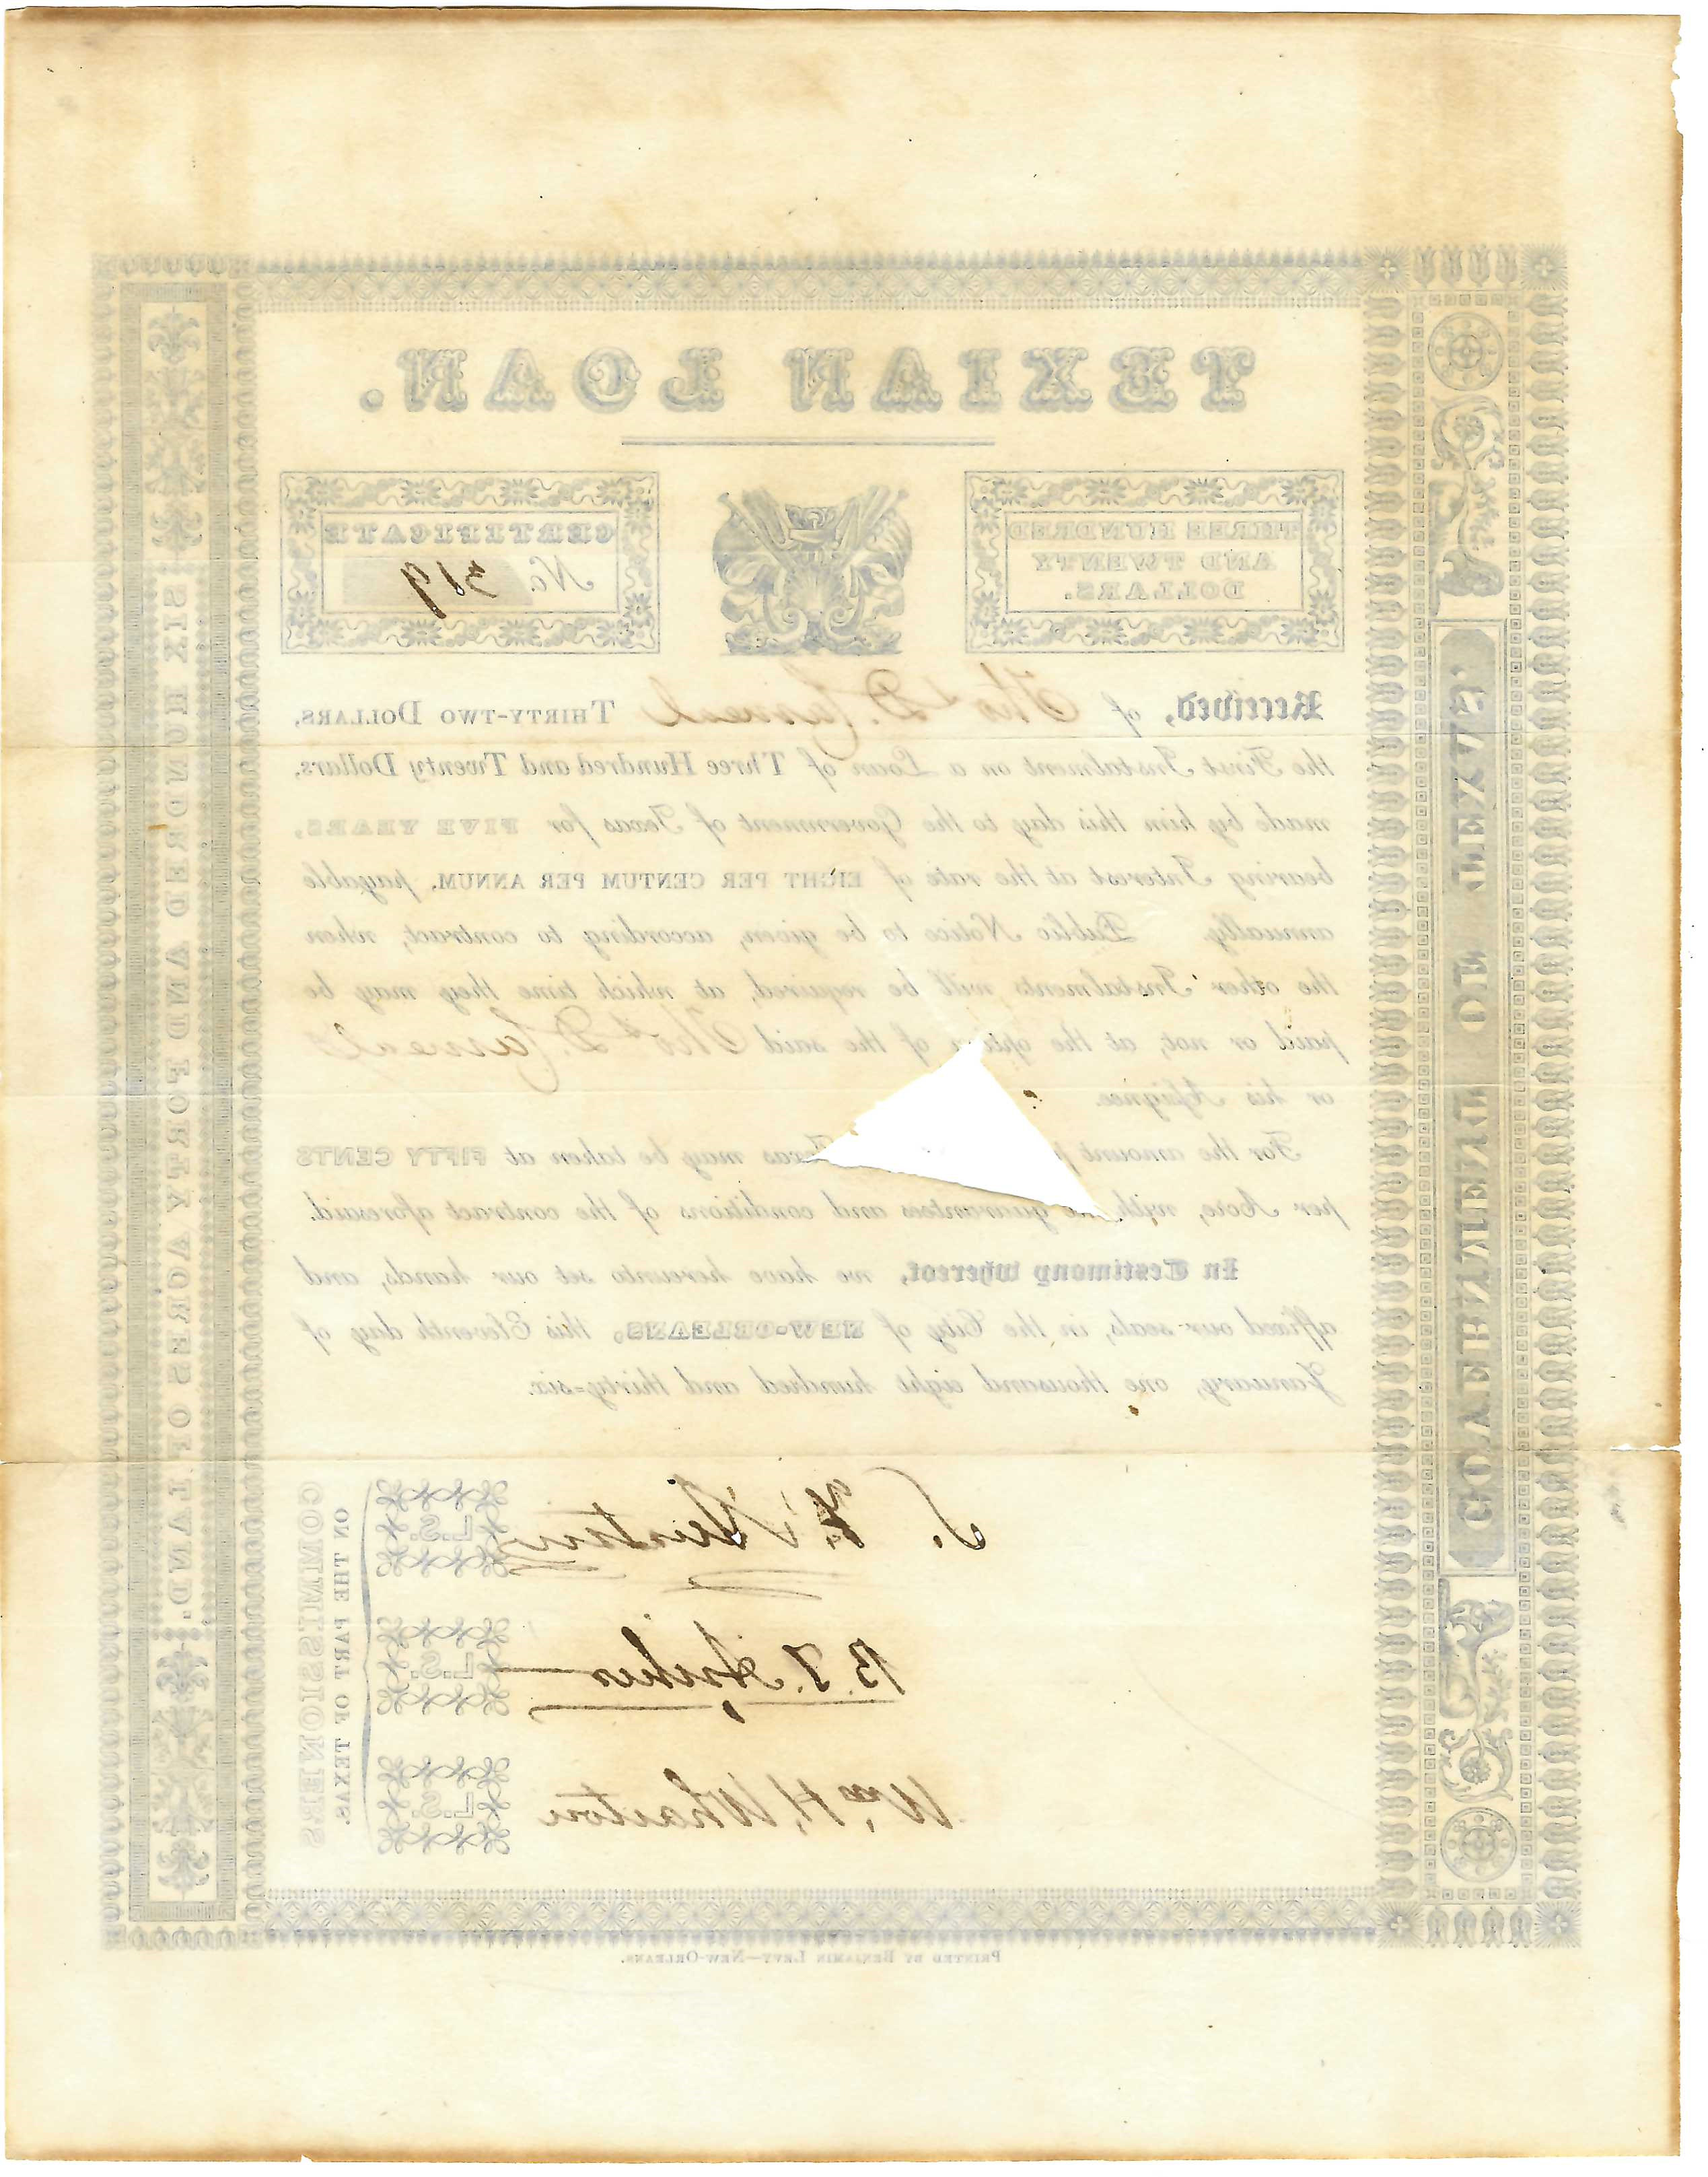 TEXIAN LOAN.
THREE HUNDRED
AND TWENTY
DOLLARS.
CERTIFICATE
No. 319
Received, of Thos D. Carneal THIRTY-TWO DOLLARS,
the First Instalment on a Loan of Three Hundred and Twenty Dollars,
made by him this day to the Government of Texas for FIVE YEARS,
bearing Interest at the rate of EIGHT PER CENTUM PER ANNUM, payable
annually. Public Notice to be given, according to contract, when
the other Instalments will be required, at which time they may be
paid or not, at the option of the said Thos D. Carneal
or his Assignee.
For the amount Texas may be taken at FIFTY CENTS
per Acre, with the guarantees and conditions of the contract aforesaid.
In Testimony whereof, we have hereunto set our hands, and
affixed our seals, in the City of NEW-ORLEANS, this Eleventh day of
January, one thousand eight hundred and thirty-six.
S. F. Austin L.S.
B. T. Archer L.S.
Wm H. Wharton L.S.
COMMISSIONERS
ON THE PART OF TEXAS.
GOVERNMENT OF TEXAS.
SIX HUNDRED AND FORTY ACRES OF LAND.
PRINTED BY BENJAMIN LEVY—NEW-ORLEANS.